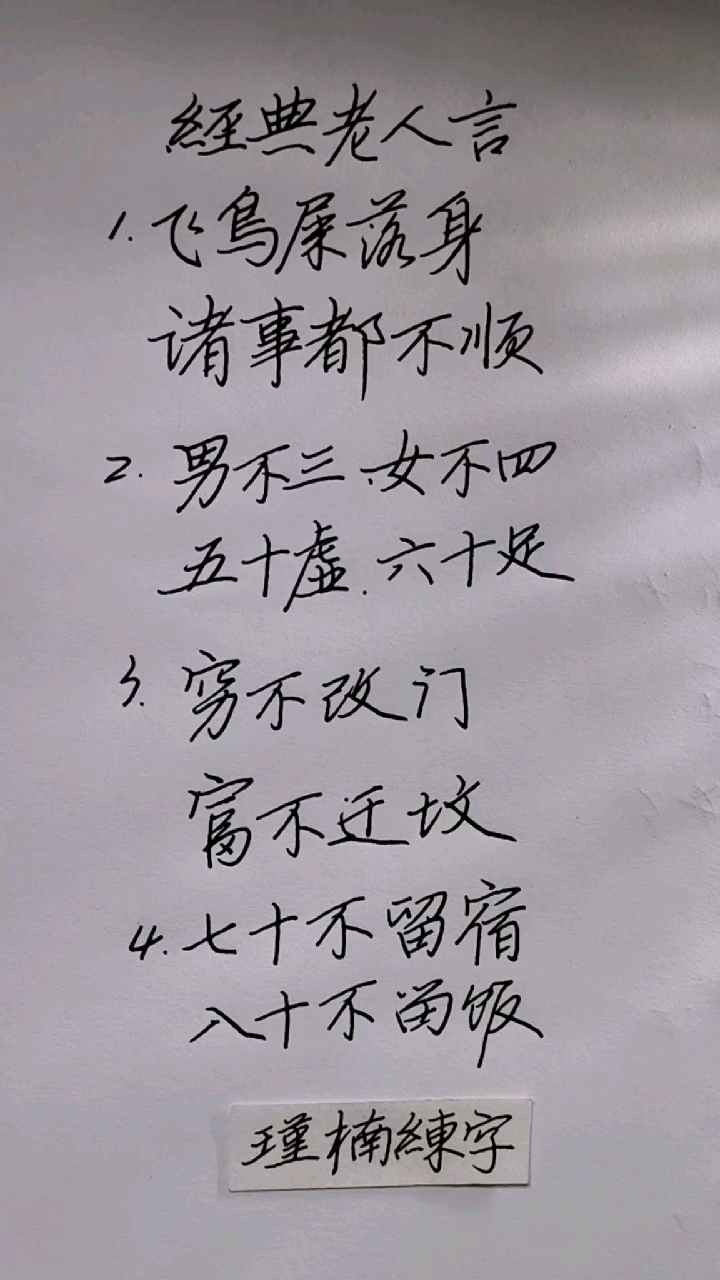 經典老人言
1. 飞鳥屎落身
诸事都不顺
2. 男不三、女不四
五十虚、六十足
3. 穷不改门
富不迁坟
4. 七十不留宿
八十不留饭
瑾楠練字